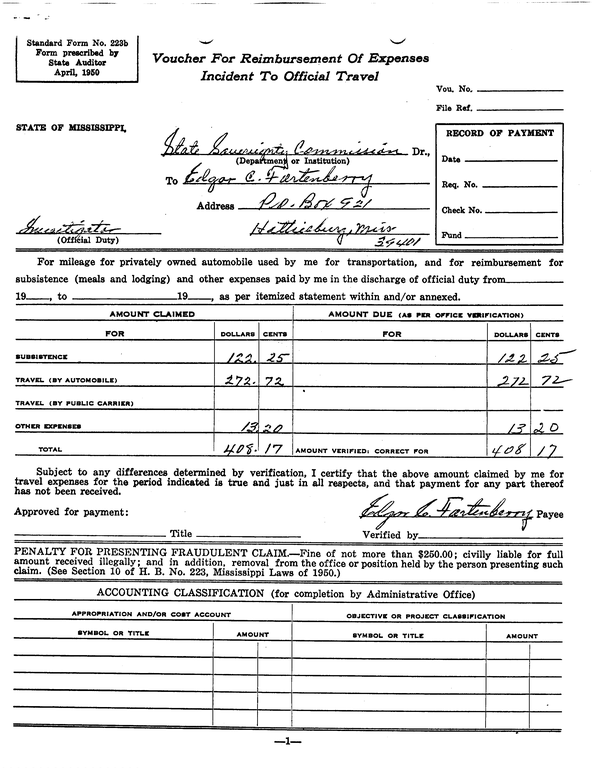 Standard Form No. 223b
Form prescribed by
State Auditor
April, 1950
Voucher For Reimbursement Of Expenses
Incident To Official Travel
Vou. No.
File Ref.
STATE OF MISSISSIPPI,
State Sovereignty Commission Dr.,
(Department or Institution)
To Edgar C. Fortenberry
Address P.O. Box 921
Investigator Hattiesburg, Miss
(Official Duty) 39401
RECORD OF PAYMENT
Date
Req. No.
Check No.
Fund
For mileage for privately owned automobile used by me for transportation, and for reimbursement for
subsistence (meals and lodging) and other expenses paid by me in the discharge of official duty from
19____, to ____ 19____, as per itemized statement within and/or annexed.
AMOUNT CLAIMED AMOUNT DUE (AS PER OFFICE VERIFICATION)
FOR DOLLARS CENTS FOR DOLLARS CENTS
SUBSISTENCE 122. 25 122 25
TRAVEL (BY AUTOMOBILE) 272. 72 272 72
TRAVEL (BY PUBLIC CARRIER)
OTHER EXPENSES 13.20 13 20
TOTAL 408. 17 AMOUNT VERIFIED: CORRECT FOR 408 17
Subject to any differences determined by verification, I certify that the above amount claimed by me for
travel expenses for the period indicated is true and just in all respects, and that payment for any part thereof
has not been received.
Approved for payment: Edgar C. Fortenberry Payee
Title Verified by
PENALTY FOR PRESENTING FRAUDULENT CLAIM.—Fine of not more than $250.00; civilly liable for full
amount received illegally; and in addition, removal from the office or position held by the person presenting such
claim. (See Section 10 of H. B. No. 223, Mississippi Laws of 1950.)
ACCOUNTING CLASSIFICATION (for completion by Administrative Office)
APPROPRIATION AND/OR COST ACCOUNT OBJECTIVE OR PROJECT CLASSIFICATION
SYMBOL OR TITLE AMOUNT SYMBOL OR TITLE AMOUNT
—1—